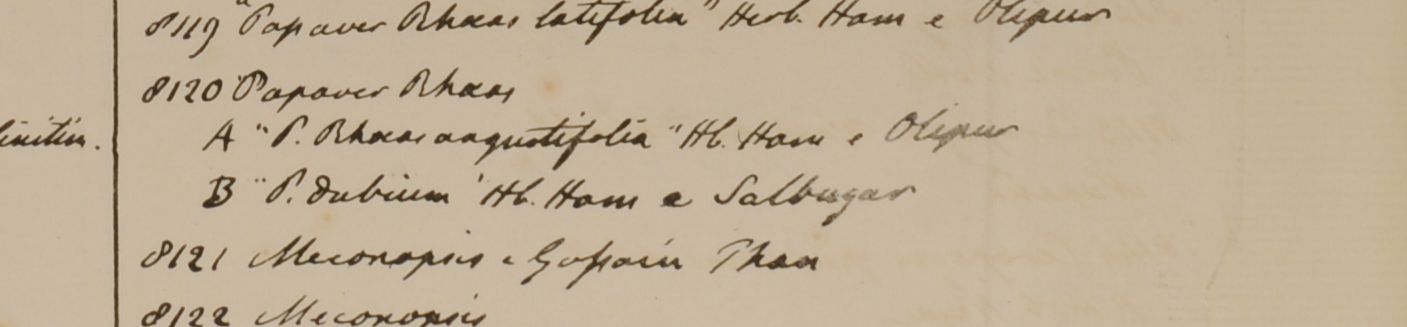 8119 "Papaver Rhæas latifolia" Herb. Ham e Olipur
8120 Papaver Rhæas
A "P. Rhæas angustifolia" Hb. Ham e Olipur
B "P. dubium" Hb. Ham e Salbugar
8121 Meconopsis e Goſsain Than
8122 Meconopsis